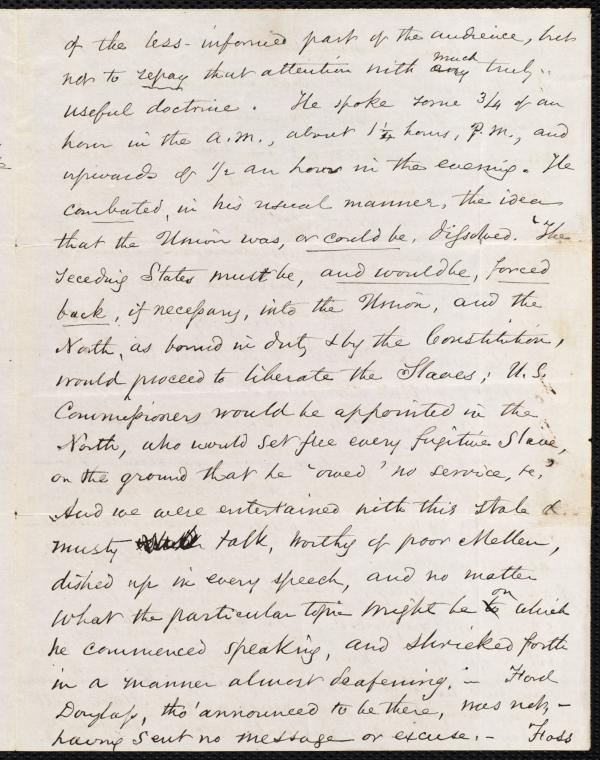 of the less-informed part of the audience, but
not to repay that attention with much truly
useful doctrine. He spoke some 3/4 of an
hour in the a.m., about 1 1/4 hours, P.M., and
upwards of 1/2 an hour in the evening. He
combated, in his usual manner, the idea
that the Union was, or could be, dissolved. "The
seceding States must be, and would be, forced
back, if necessary, into the Union, and the
North, as bound in duty & by the Constitution,
would proceed to liberate the Slaves; U.S.
Commissioners would be appointed in the
North, who would set free every fugitive Slave,
on the ground that he 'owed' no service, &c."
And we were entertained with this stale &
musty talk, worthy of poor Mellen,
dished up in every speech, and no matter
what the particular topic might be on which
he commenced speaking, and shrieked forth
in a manner almost deafening. – Ford
Douglass, tho' announced to be there, was not, –
having sent no message or excuse. – Foss